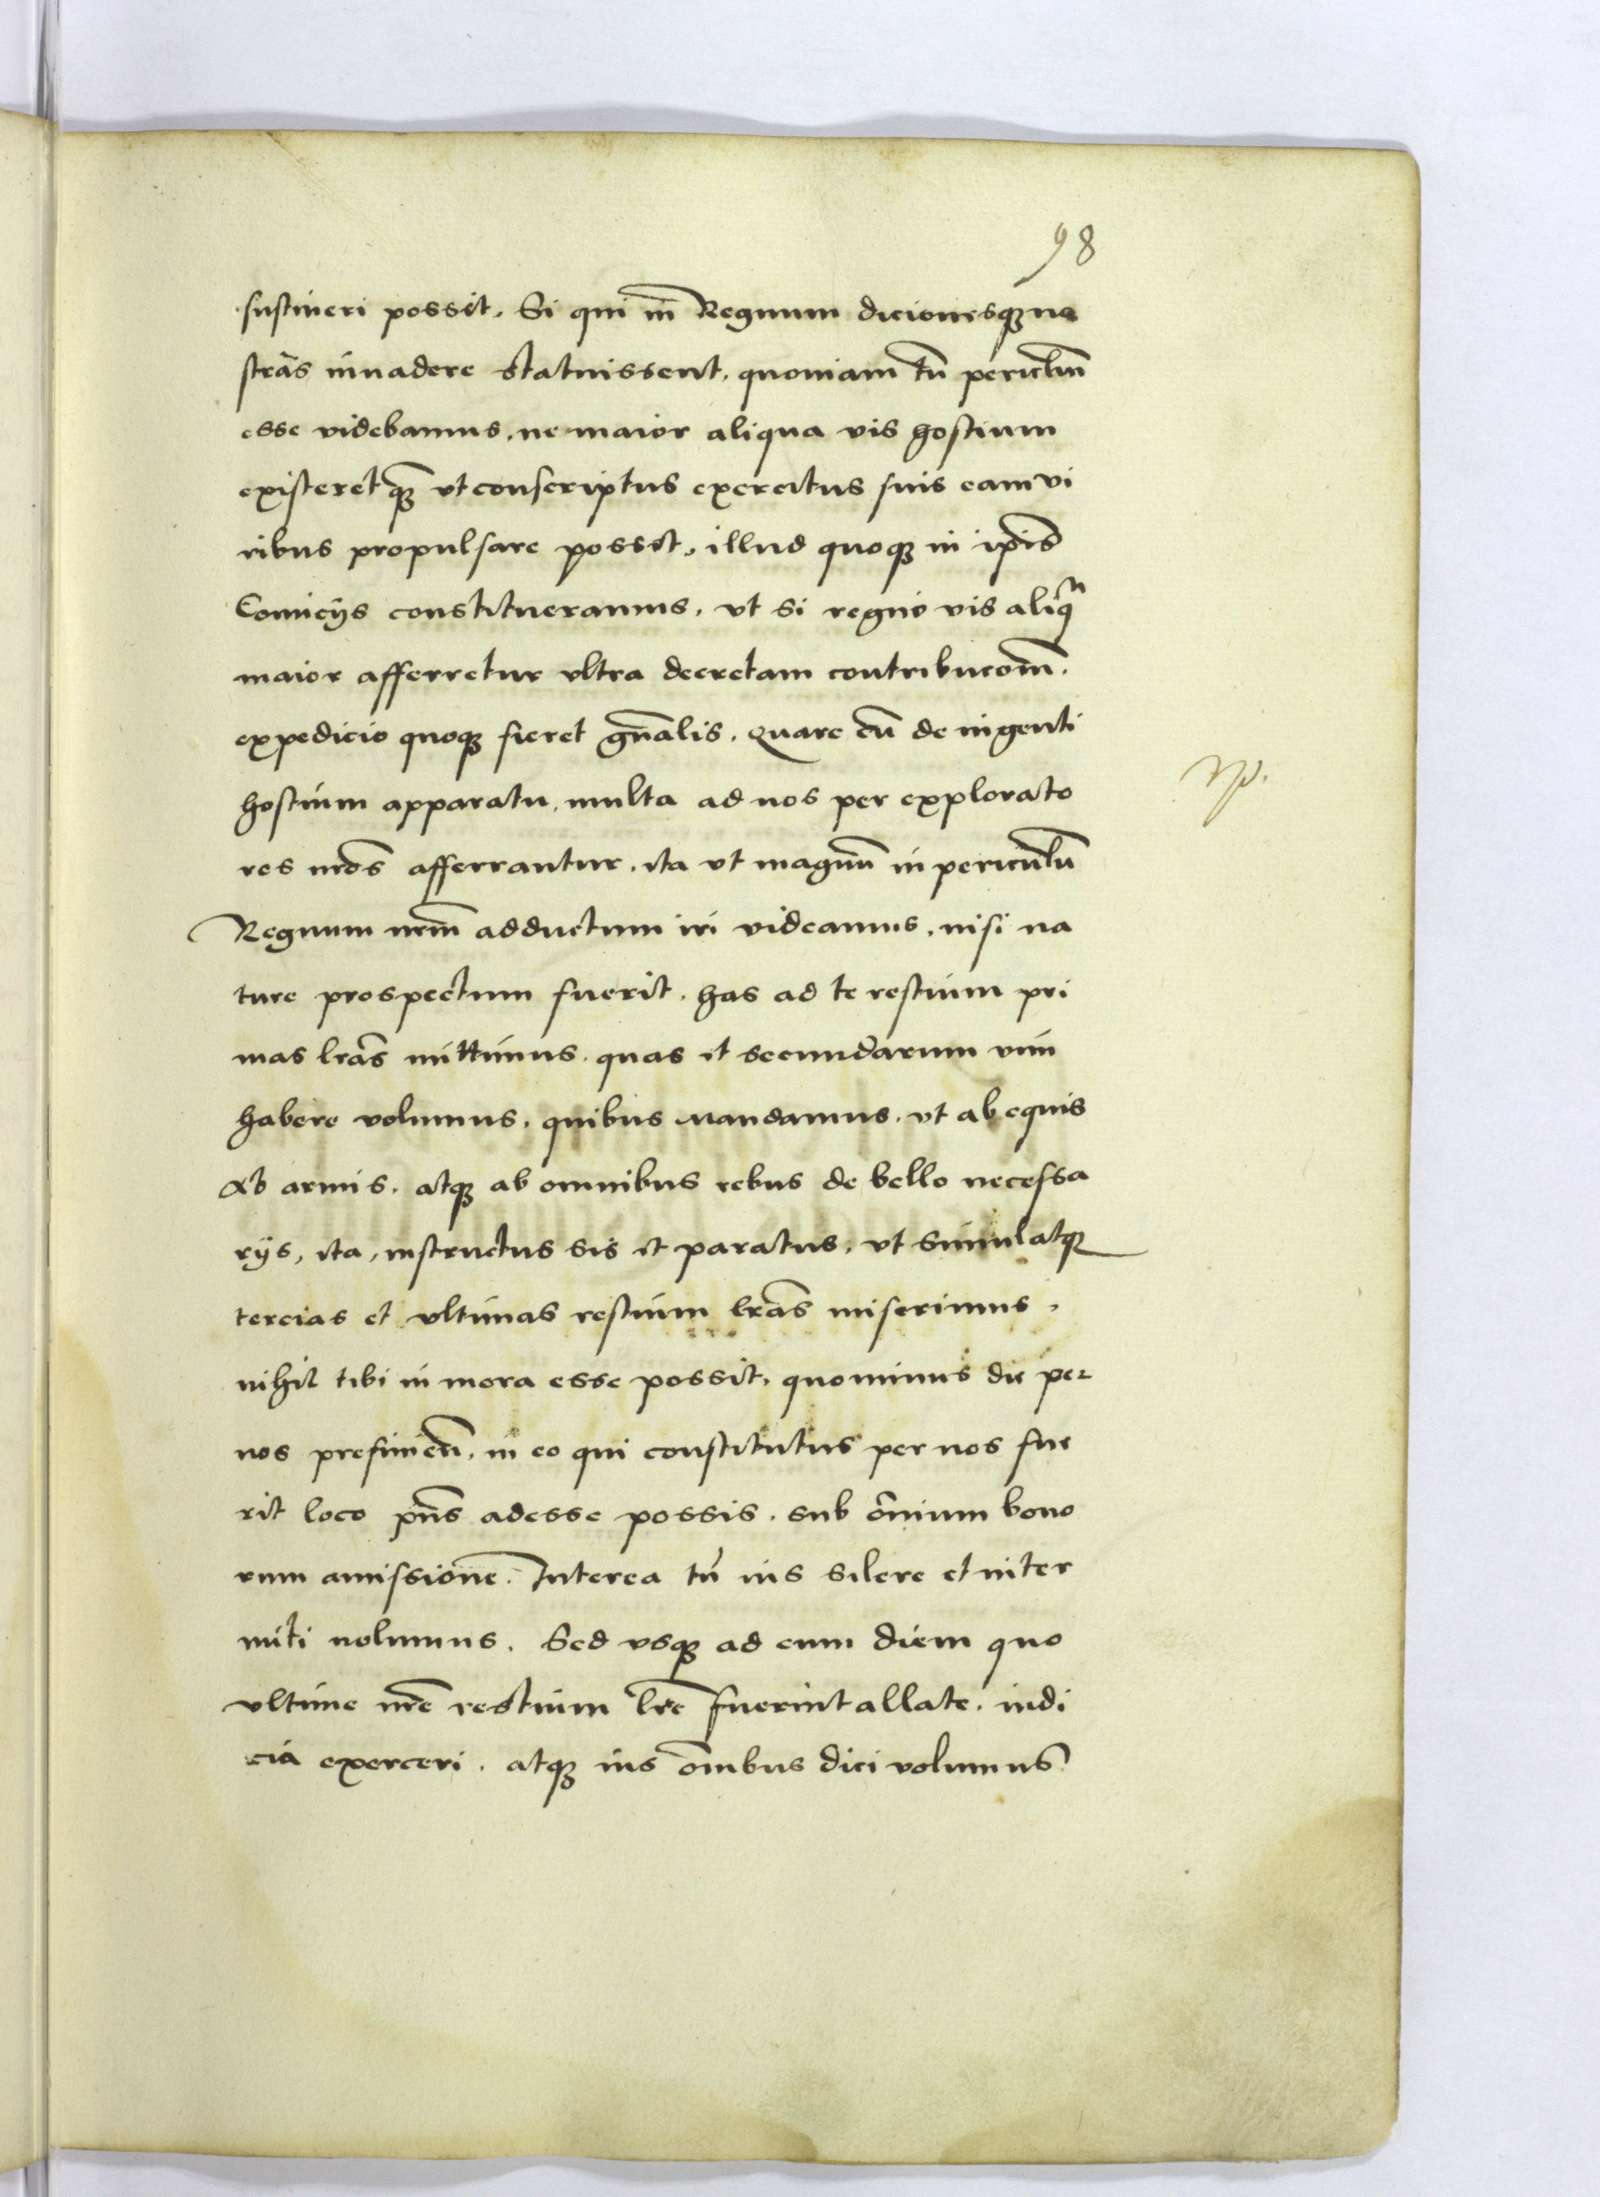 98
sustineri possit. Si qui in Regnum dicionesqꝫ no
strãs inuadere statuissent. quoniam tñ periclm̃
esse videbamus. ne maior aliqua vis hostium
existeret qꝫ̃ vt conscriptus exercitus suis eam vi
ribus propulsare possit. illud quoqꝫ in ip̃is
Comicijs constitueramus. vt si regno vis aliqͣ
maior afferretur vltra decretam contribucom̃.
expedicio quoqꝫ fieret gñalis. Quare cũ de ingenti
hostium apparatu, multa ad nos per explorato
res nr̃os afferrantur. ita vt magnũ in periculũ
Regnum nrm̃ adductum iri videamus. nisi na
ture prospectum fuerit. has ad te restium pri
mas lrãs mittimus. quas et secundarum vim
habere volumus. quibus Mandamus. vt ab equis
Ab armis. atqꝫ ab omnibus rebus de bello necessa
rijs, ita, instructus sis et paratus. vt simul atqꝫ
tercias et vltimas restium lrãs miserimus.
nihil tibi in mora esse possit. quominus die per
nos prefiniendã. in eo qui constitutus per nos fue
rit loco pñs adesse possis. sub õmnium bono
rum amissione. Interea tñ ius silere et inter
miti nolumus. Sed vsqꝫ ad eum diem quo
vltime nrẽ restium lrẽ fuerint allate. iudi
cia exerceri. atqꝫ ius om̃ibus dici volumus